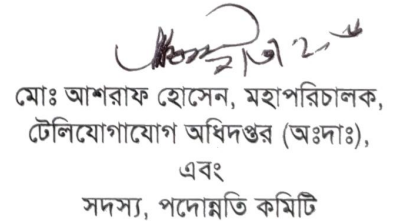 মোঃ আশরাফ হোসেন, মহাপরিচালক,
টেলিযোগাযোগ অধিদপ্তর (অঃদাঃ),
এবং
সদস্য, পদোন্নতি কমিটি